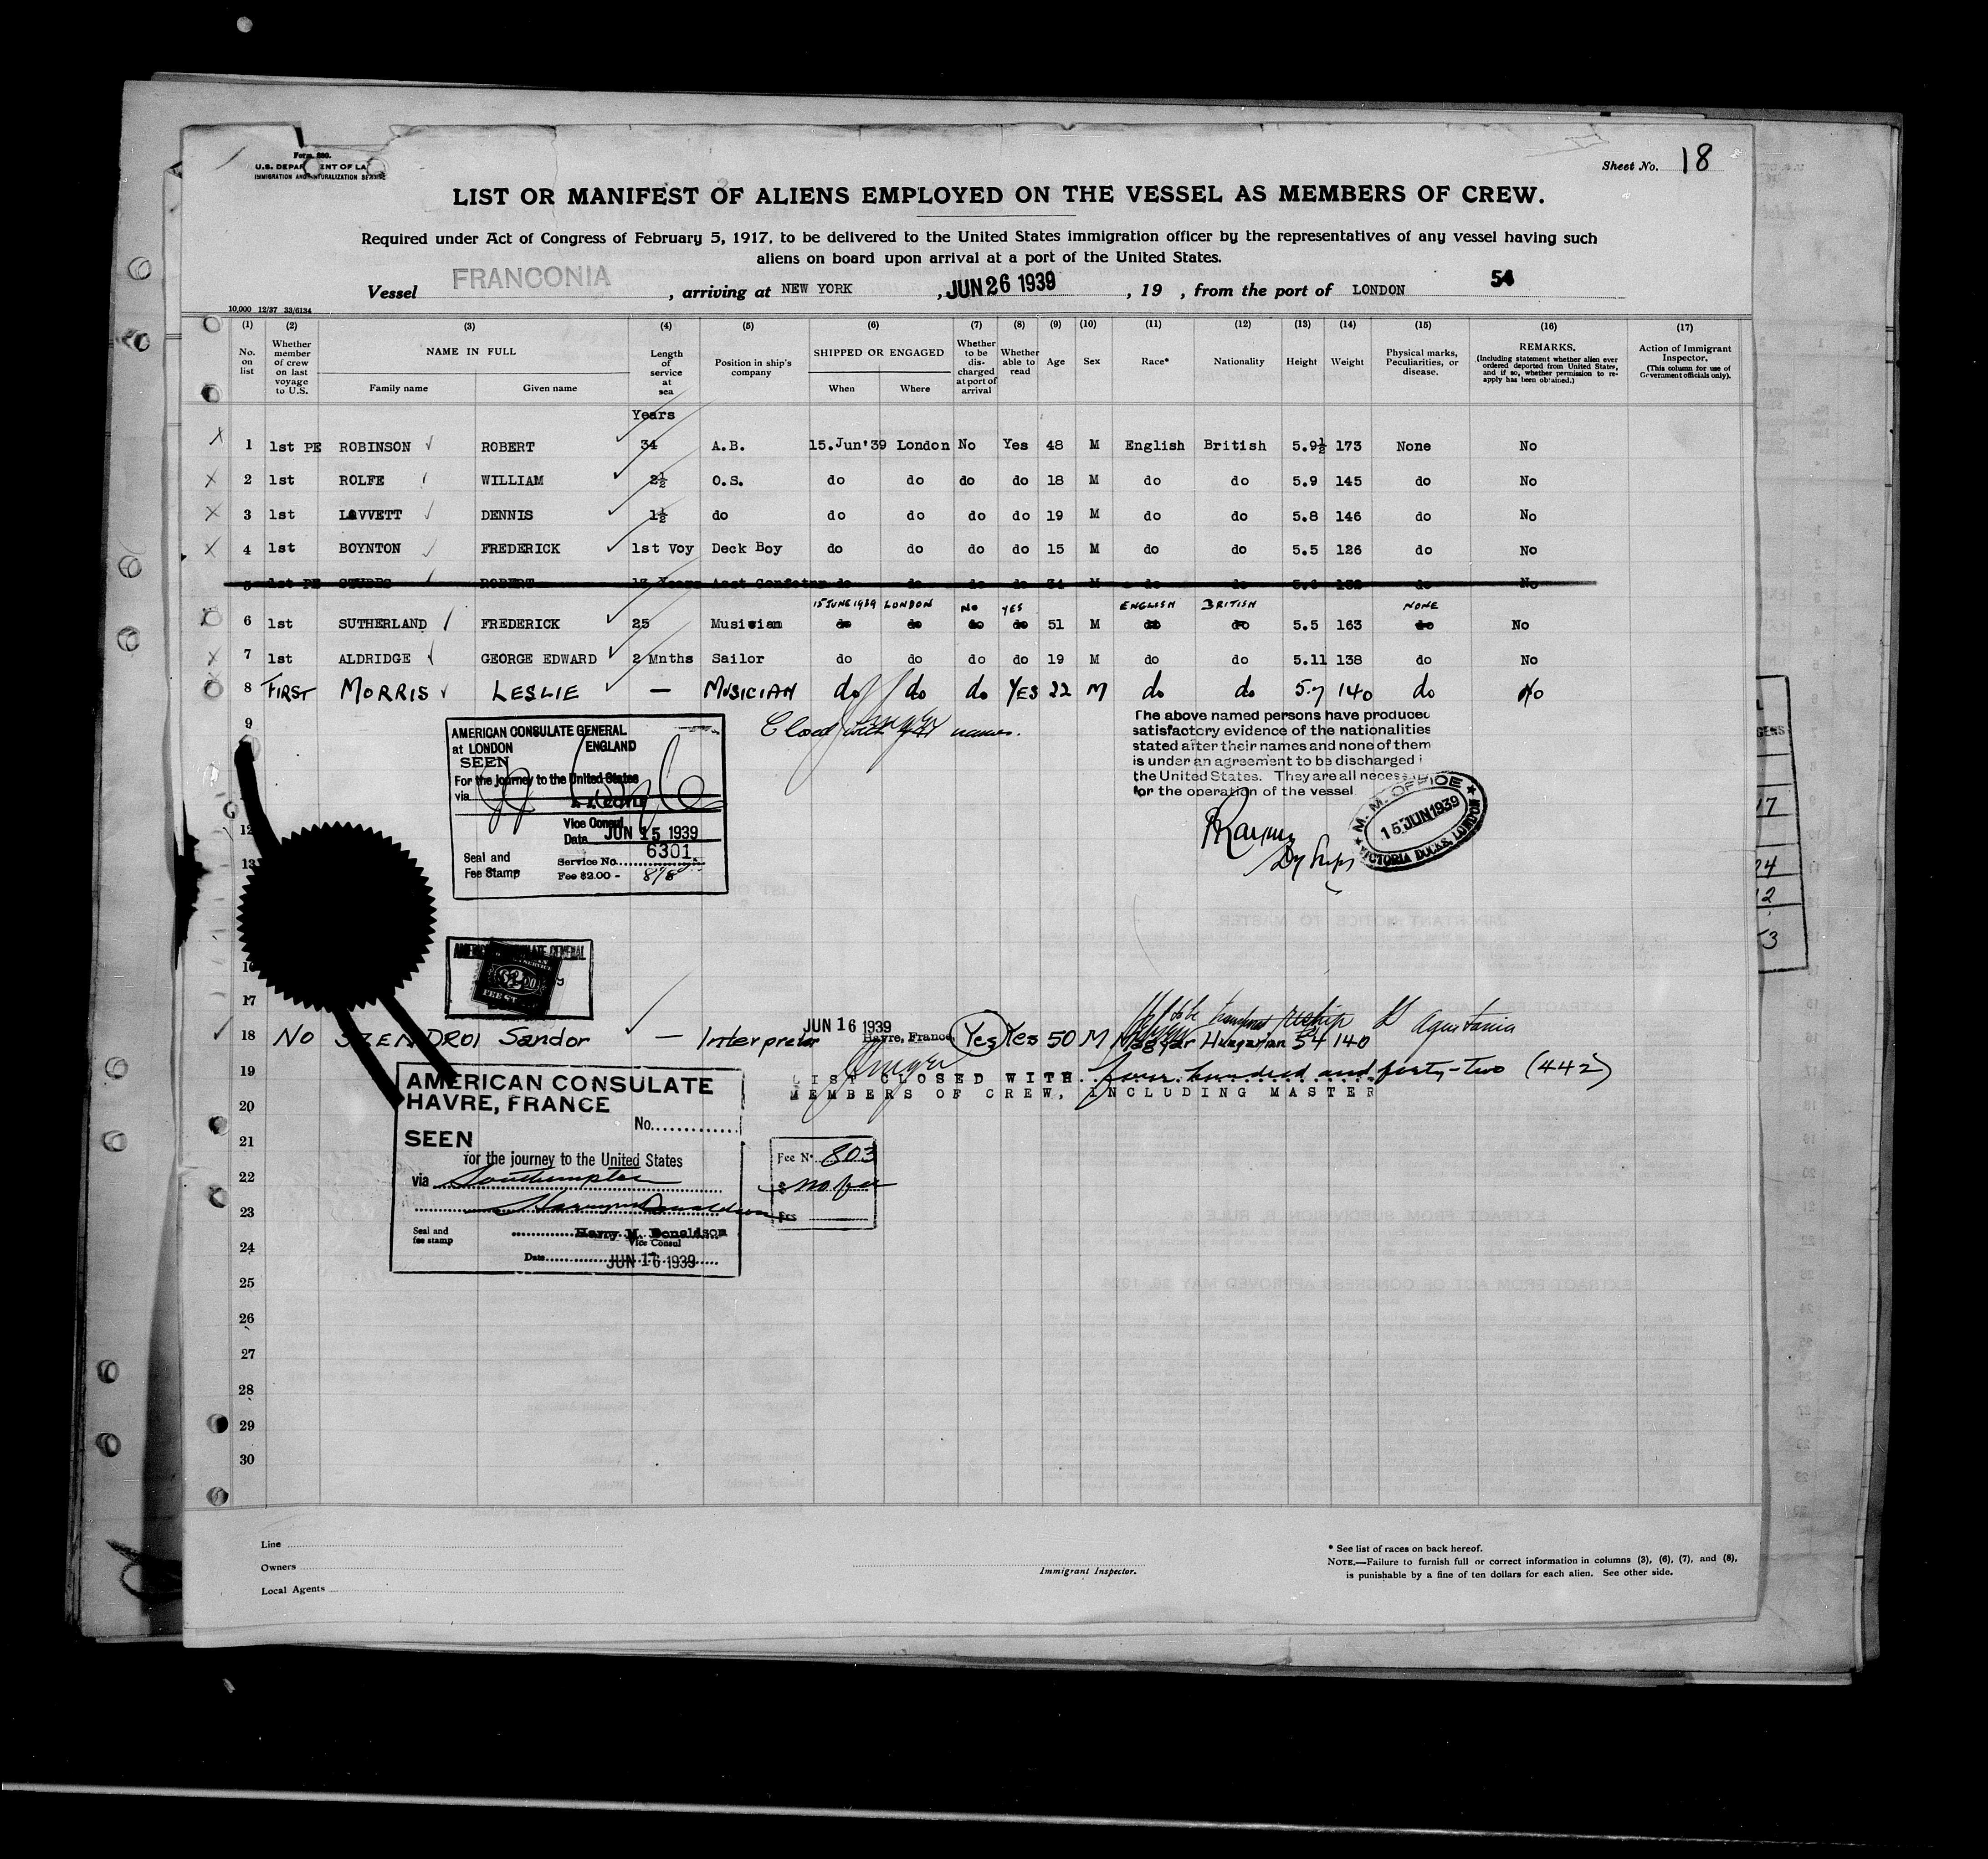 Form 680.
U.S. DEPARTMENT OF LA
IMMIGRATION AND NATURALIZATION SERVICE
Sheet No. 18
LIST OR MANIFEST OF ALIENS EMPLOYED ON THE VESSEL AS MEMBERS OF CREW.
Required under Act of Congress of February 5, 1917, to be delivered to the United States immigration officer by the representatives of any vessel having such
aliens on board upon arrival at a port of the United States.
Vessel FRANCONIA , arriving at NEW YORK , JUN 26 1939 , 19 , from the port of LONDON 54
10,000 12/37 33/6134
(1) (2) (3) (4) (5) (6) (7) (8) (9) (10) (11) (12) (13) (14) (15) (16) (17)
No. on list
Whether member of crew on last voyage to U.S.
NAME IN FULL
Family name Given name
Length of service at sea
Position in ship's company
SHIPPED OR ENGAGED
When Where
Whether to be discharged at port of arrival
Whether able to read
Age
Sex
Race*
Nationality
Height
Weight
Physical marks, Peculiarities, or disease.
REMARKS.
(Including statement whether alien ever ordered deported from United States, and if so, whether permission to re-apply has been obtained.)
Action of Immigrant Inspector.
(This column for use of Government officials only).
Years
1 1st PE ROBINSON ROBERT 34 A.B. 15.Jun'39 London No Yes 48 M English British 5.9½ 173 None No
2 1st ROLFE WILLIAM 2½ O.S. do do do do 18 M do do 5.9 145 do No
3 1st LOVVETT DENNIS 1½ do do do do do 19 M do do 5.8 146 do No
4 1st BOYNTON FREDERICK 1st Voy Deck Boy do do do do 15 M do do 5.5 126 do No
5 1st PE STUBBS ROBERT 13 Years do do do do 34 M do do do No
15 JUNE 1939 LONDON No YES ENGLISH BRITISH NONE
6 1st SUTHERLAND FREDERICK 25 Musician do do do do 51 M do do 5.5 163 do No
7 1st ALDRIDGE GEORGE EDWARD 2 Mnths Sailor do do do do 19 M do do 5.11 138 do No
8 FIRST MORRIS LESLIE — MUSICIAN do do do YES 22 M do do 5.7 140 do No
9
Closed with 441 names.
AMERICAN CONSULATE GENERAL
at LONDON ENGLAND
SEEN
For the journey to the United States
via
Vice Consul
Date JUN 15 1939
Service No. 6301
Seal and
Fee Stamp
Fee $2.00 -
The above named persons have produced
satisfactory evidence of the nationalities
stated after their names and none of them
is under an agreement to be discharged i
the United States. They are all necess
for the operation of the vessel
M. M. OFFICE
15 JUN 1939
VICTORIA DOCKS, LONDON
12
13
AMERICAN CONSULATE GENERAL
16
17
to be reship Aquitania
18 No SZENDROI Sandor — Interpreter JUN 16 1939 Havre, France. Yes Yes 50 M Magyar Hungarian 54 140
19
LIST CLOSED WITH four hundred and forty-two (442)
MEMBERS OF CREW, INCLUDING MASTER
20
AMERICAN CONSULATE
HAVRE, FRANCE
No.
SEEN
for the journey to the United States
via Southampton
Harry M. Donaldson
Seal and
fee stamp
Harry M. Donaldson
Vice Consul
Date JUN 16 1939
Fee No. 803
$ no fee
Frs
21
22
23
24
25
26
27
28
29
30
Line
Owners
Local Agents
Immigrant Inspector.
* See list of races on back hereof.
NOTE.—Failure to furnish full or correct information in columns (3), (6), (7), and (8),
is punishable by a fine of ten dollars for each alien. See other side.